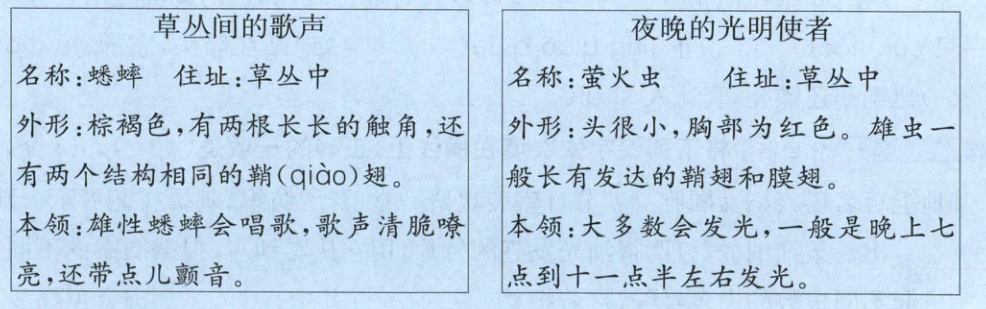 草丛间的歌声
名称:蟋蟀 住址:草丛中
外形:棕褐色,有两根长长的触角,还
有两个结构相同的鞘(qiào)翅。
本领:雄性蟋蟀会唱歌,歌声清脆嘹
亮,还带点儿颤音。
夜晚的光明使者
名称:萤火虫 住址:草丛中
外形:头很小,胸部为红色。雄虫一
般长有发达的鞘翅和膜翅。
本领:大多数会发光,一般是晚上七
点到十一点半左右发光。